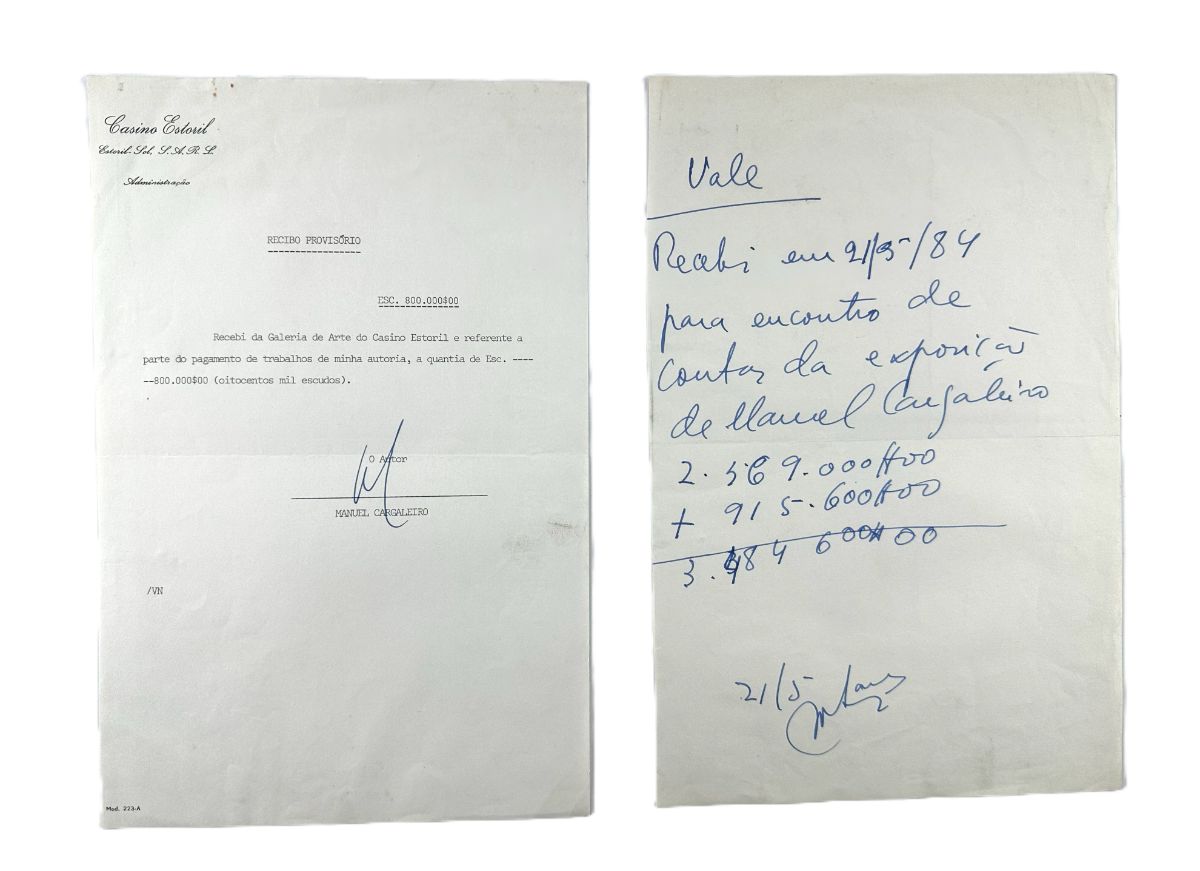 Casino Estoril
Estoril-Sol, S.A.R.L.
Administração
RECIBO PROVISÓRIO
ESC. 800.000$00
Recebi da Galeria de Arte do Casino Estoril e referente a
parte do pagamento de trabalhos de minha autoria, a quantia de Esc. ----
--800.000$00 (oitocentos mil escudos).
O Autor
MANUEL CARGALEIRO
/VN
Mod. 223-A
Vale
Recebi em 21/5/84
para encontro de
contas da exposição
de Manuel Cargaleiro
2.569.000$00
+ 915.600$00
3.484 600$00
21/5